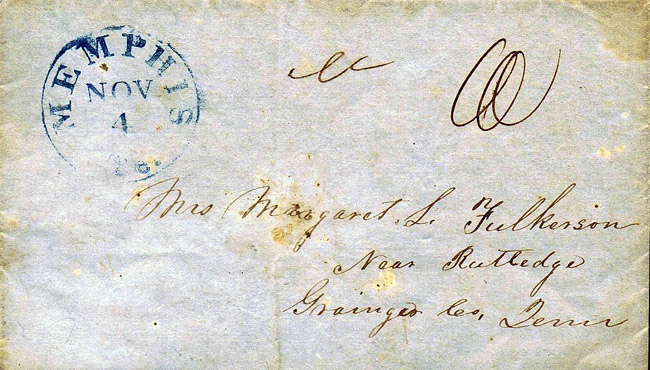 MEMPHIS
NOV
4
Te.
Mrs Margaret. L. Fulkerson
Near Rutledge
Grainger Co, Tenn